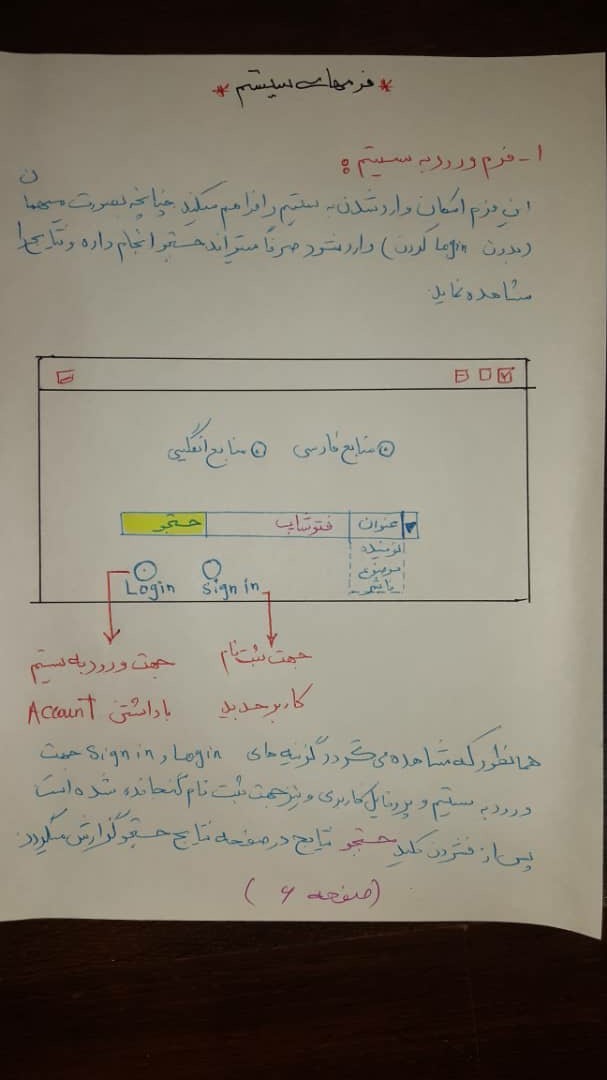 * فرمهای سیستم *
۱- فرم ورود به سیستم :
این فرم امکان وارد شدن به سیستم را فراهم میکند چنانچه بصورت میهمان
(بدون Login کردن) وارد شود صرفاً میتواند جستجو انجام داده و نتایج را
مشاهده نماید.
منابع فارسی منابع انگلیسی
عنوان فتوشاپ جستجو
نویسنده
موضوع
ناشر
Login Sign in
جهت ثبت نام جهت ورود به سیستم
کاربر جدید با داشتن Account
همانطور که مشاهده می شود در گزینه های Login و Sign in جهت
ورود به سیستم و پروفایل کاربری و نیز جهت ثبت نام گنجانده شده است
پس از فشردن کلید جستجو نتایج در صفحه نتایج جستجو گزارش میگردد.
(صفحه ۶)